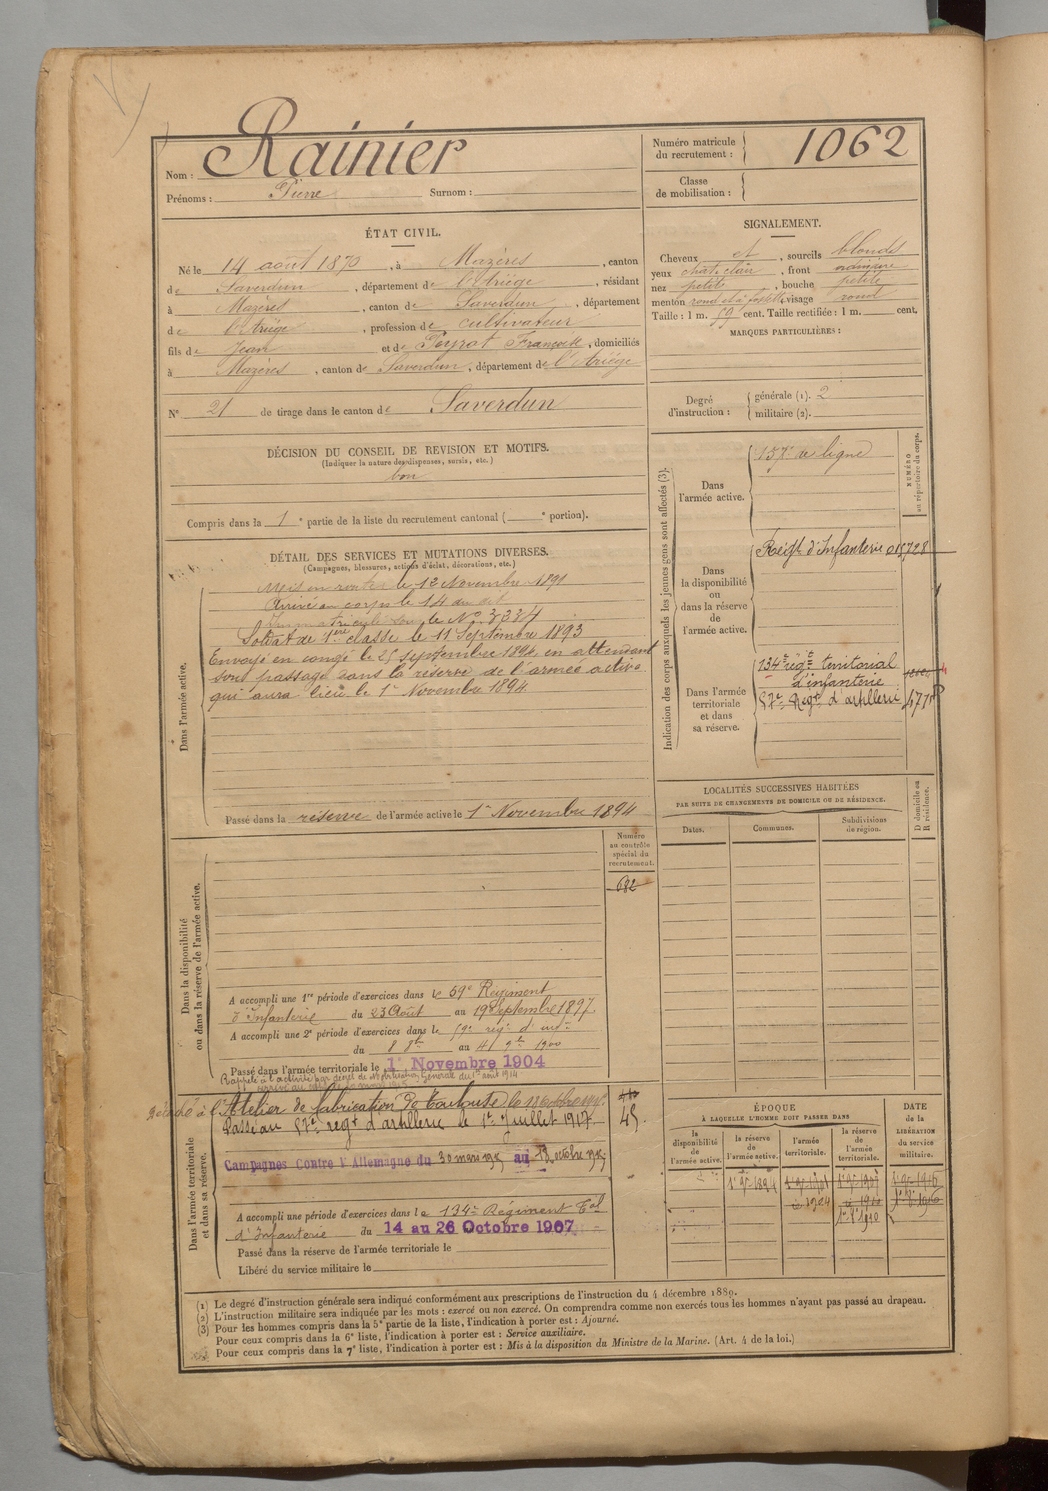 Nom : Rainier
Prénoms : Pierre Surnom :
Numéro matricule du recrutement : 1062
Classe de mobilisation :
ÉTAT CIVIL.
Né le 14 août 1870, à Mazères, canton
de Saverdun, département de l'Ariège, résidant
à Mazères, canton de Saverdun, département
de l'Ariège, profession de cultivateur
fils de Jean et de Peyrat Françoise, domiciliés
à Mazères, canton de Saverdun, département de l'Ariège
N° 21 de tirage dans le canton de Saverdun
SIGNALEMENT.
Cheveux et, sourcils blonds
yeux chat. clair, front ordinaire
nez petite, bouche petite
menton rond et à fossette, visage rond
Taille : 1 m. 59 cent. Taille rectifiée : 1 m. cent.
MARQUES PARTICULIÈRES :
Degré d'instruction : générale (1). 2
militaire (2).
DÉCISION DU CONSEIL DE REVISION ET MOTIFS.
(Indiquer la nature des dispenses, sursis, etc.)
bon
Compris dans la 1e partie de la liste du recrutement cantonal ( e portion).
Indication des corps auxquels les jeunes gens sont affectés (3).
NUMÉRO au répertoire du corps.
Dans l'armée active.
de ligne
Dans la disponibilité ou dans la réserve de l'armée active.
d'Infanterie
Dans l'armée territoriale et dans sa réserve.
134e régt territorial
d'infanterie
57e Régt d'artillerie
DÉTAIL DES SERVICES ET MUTATIONS DIVERSES.
(Campagnes, blessures, actions d'éclat, décorations, etc.)
Dans l'armée active.
Mis en route le 12 Novembre 1891
Arrivé au corps le 14 du dit
Immatriculé sous le No 3334
Soldat de 1ère classe le 11 Septembre 1893
Envoyé en congé le 25 septembre 1894, en attendant
son passage dans la réserve de l'armée active
qui aura lieu le 1er Novembre 1894
Passé dans la réserve de l'armée active le 1er Novembre 1894
LOCALITÉS SUCCESSIVES HABITÉES
PAR SUITE DE CHANGEMENTS DE DOMICILE OU DE RÉSIDENCE.
Dates. Communes. Subdivisions de région. D domicile ou R résidence.
Numéro au contrôle spécial du recrutement.
682
Dans la disponibilité ou dans la réserve de l'armée active.
A accompli une 1re période d'exercices dans le 59e Régiment
d'Infanterie du 23 Août au 19 Septembre 1897
A accompli une 2e période d'exercices dans le 59e régt d'inf.
du 8 8bre au 4 9bre 1900
Passé dans l'armée territoriale le 1er Novembre 1904
Rappelé à l'activité par décret de Mobilisation Générale du 1er août 1914
Dans l'armée territoriale et dans sa réserve.
Détaché à l'Atelier de fabrication de Toulouse
Passé au 57e régt d'artillerie le 1er Juillet 1917.
45.
Campagnes Contre l'Allemagne du 30 mars 1915 au 13 octobre 1915
A accompli une période d'exercices dans le 134e Régiment Tal
d'Infanterie du 14 au 26 Octobre 1907
Passé dans la réserve de l'armée territoriale le
Libéré du service militaire le
ÉPOQUE
À LAQUELLE L'HOMME DOIT PASSER DANS
la disponibilité de l'armée active.
la réserve de l'armée active.
l'armée territoriale.
la réserve de l'armée territoriale.
DATE de la LIBÉRATION du service militaire.
1er 9bre 1894
(1) Le degré d'instruction générale sera indiqué conformément aux prescriptions de l'instruction du 4 décembre 1889.
(2) L'instruction militaire sera indiquée par les mots : exercé ou non exercé. On comprendra comme non exercés tous les hommes n'ayant pas passé au drapeau.
(3) Pour les hommes compris dans la 5e partie de la liste, l'indication à porter est : Ajourné.
Pour ceux compris dans la 6e liste, l'indication à porter est : Service auxiliaire.
Pour ceux compris dans la 7e liste, l'indication à porter est : Mis à la disposition du Ministre de la Marine. (Art. 4 de la loi.)